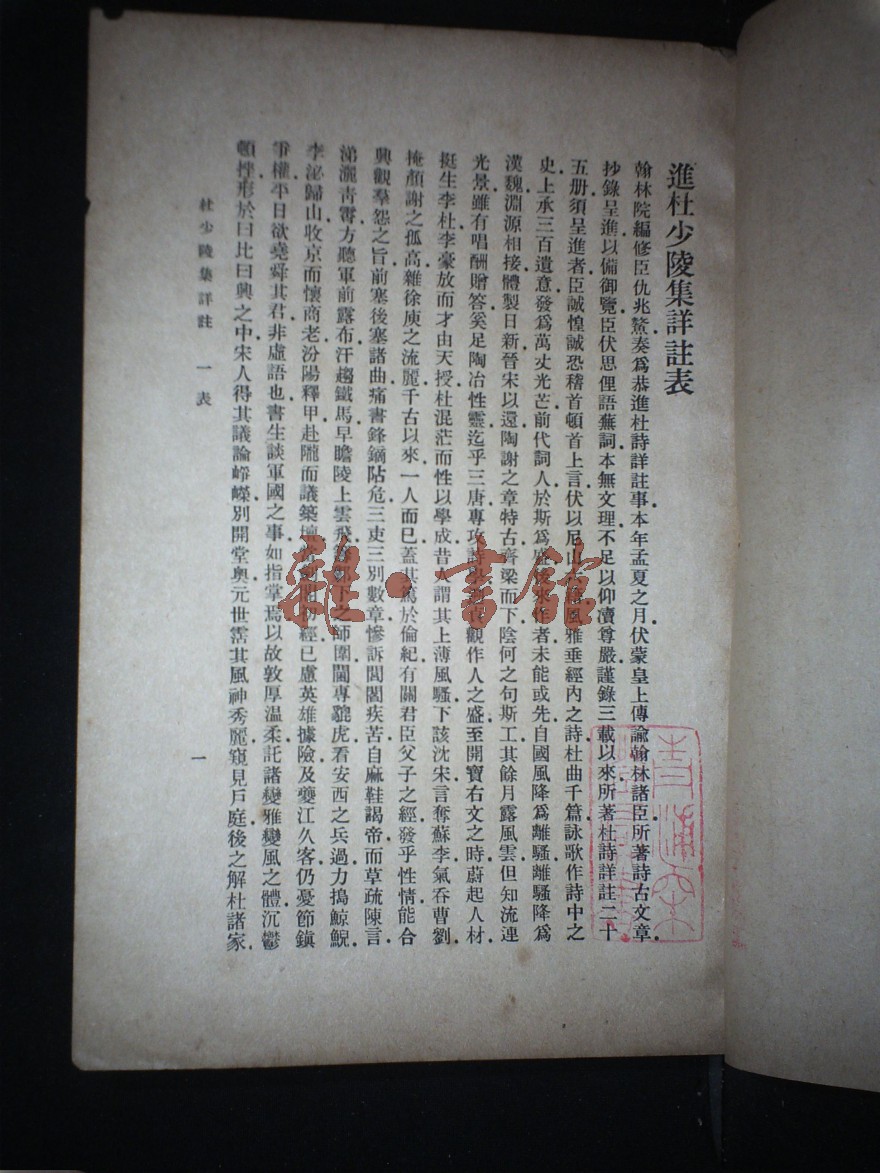 進杜少陵集詳註表
翰林院編修臣仇兆鰲奏爲恭進杜詩詳註事本年孟夏之月伏蒙皇上傳諭翰林諸臣所著詩古文章
抄錄呈進以備御覽臣伏思俚語蕪詞本無文理不足以仰瀆尊嚴謹錄三載以來所著杜詩詳註二十
五册須呈進者臣誠惶誠恐稽首頓首上言伏以尼山六籍風雅垂經內之詩杜曲千篇詠歌作詩中之
史上承三百遺意發爲萬丈光芒前代詞人於斯爲盛後來作者未能或先自國風降爲離騷離騷降爲
漢魏淵源相接體製日新晉宋以還陶謝之章特古齊梁而下陰何之句斯工其餘月露風雲但知流連
光景雖有唱酬贈答奚足陶冶性靈迄乎三唐專攻詩學觀作人之盛至開寶右文之時蔚起人材
挺生李杜李豪放而才由天授杜混茫而性以學成昔人謂其上薄風騷下該沈宋言奪蘇李氣吞曹劉
掩顏謝之孤高雜徐庾之流麗千古以來一人而已蓋其篤於倫紀有關君臣父子之經發乎性情能合
興觀羣怨之旨前塞後塞諸曲痛書鋒鏑阽危三吏三別數章慘訴閭閻疾苦自麻鞋謁帝而草疏陳言
涕灑青霄方聽軍前露布汗趨鐵馬早瞻陵上雲飛下之師圍闖專貔虎看安西之兵過力搗鯨鯢
李泌歸山收京而懷商老汾陽釋甲赴隴而議築壇經已慮英雄據險及夔江久客仍憂節鎭
爭權平日欲堯舜其君非虛語也書生談軍國之事如指掌焉以故敦厚溫柔託諸變雅變風之體沉鬱
頓挫形於曰比曰興之中宋人得其議論崢嶸別開堂奧元世霑其風神秀麗窺見戶庭後之解杜諸家
杜少陵集詳註 一 表
一
雅·書館